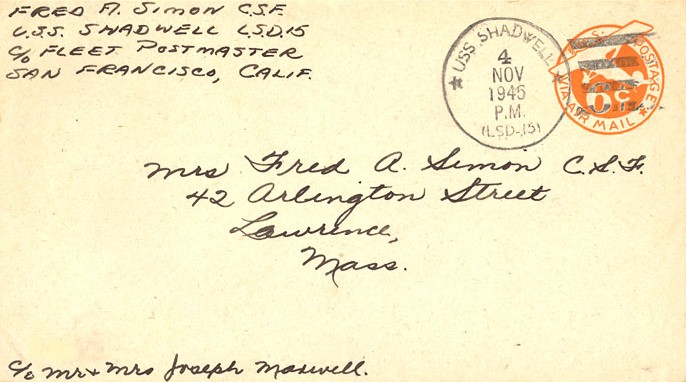 FRED A. SIMON C.S.F.
U.S.S. SHADWELL L.S.D.15
c/o FLEET POSTMASTER
SAN FRANCISCO, CALIF.
USS. SHADWELL
4
NOV
1945
P.M.
(LSD-15)
U.S. POSTAGE
6c
VIA AIR MAIL
Mrs Fred A. Simon C.S.F.
42 Arlington Street
Lawrence,
Mass.
c/o Mr & Mrs Joseph Maxwell.